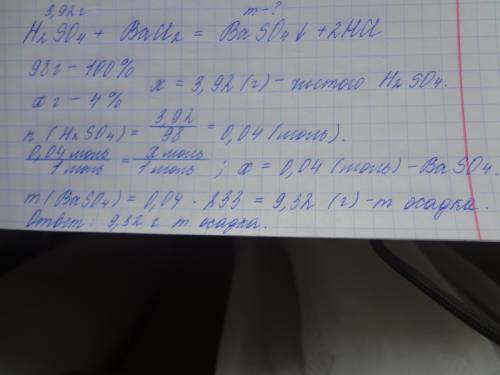 3,92 г m-?
H₂SO₄ + BaCl₂ = BaSO₄↓ + 2HCl
98 г - 100%
x г - 4% x = 3,92 (г) - чистого H₂SO₄.
n (H₂SO₄) = 3,92/98 = 0,04 (моль).
0,04 моль/1 моль = x моль/1 моль ; x = 0,04 (моль) - BaSO₄.
m (BaSO₄) = 0,04 · 233 = 9,32 (г) - m осадка.
Ответ: 9,32 г m осадка.